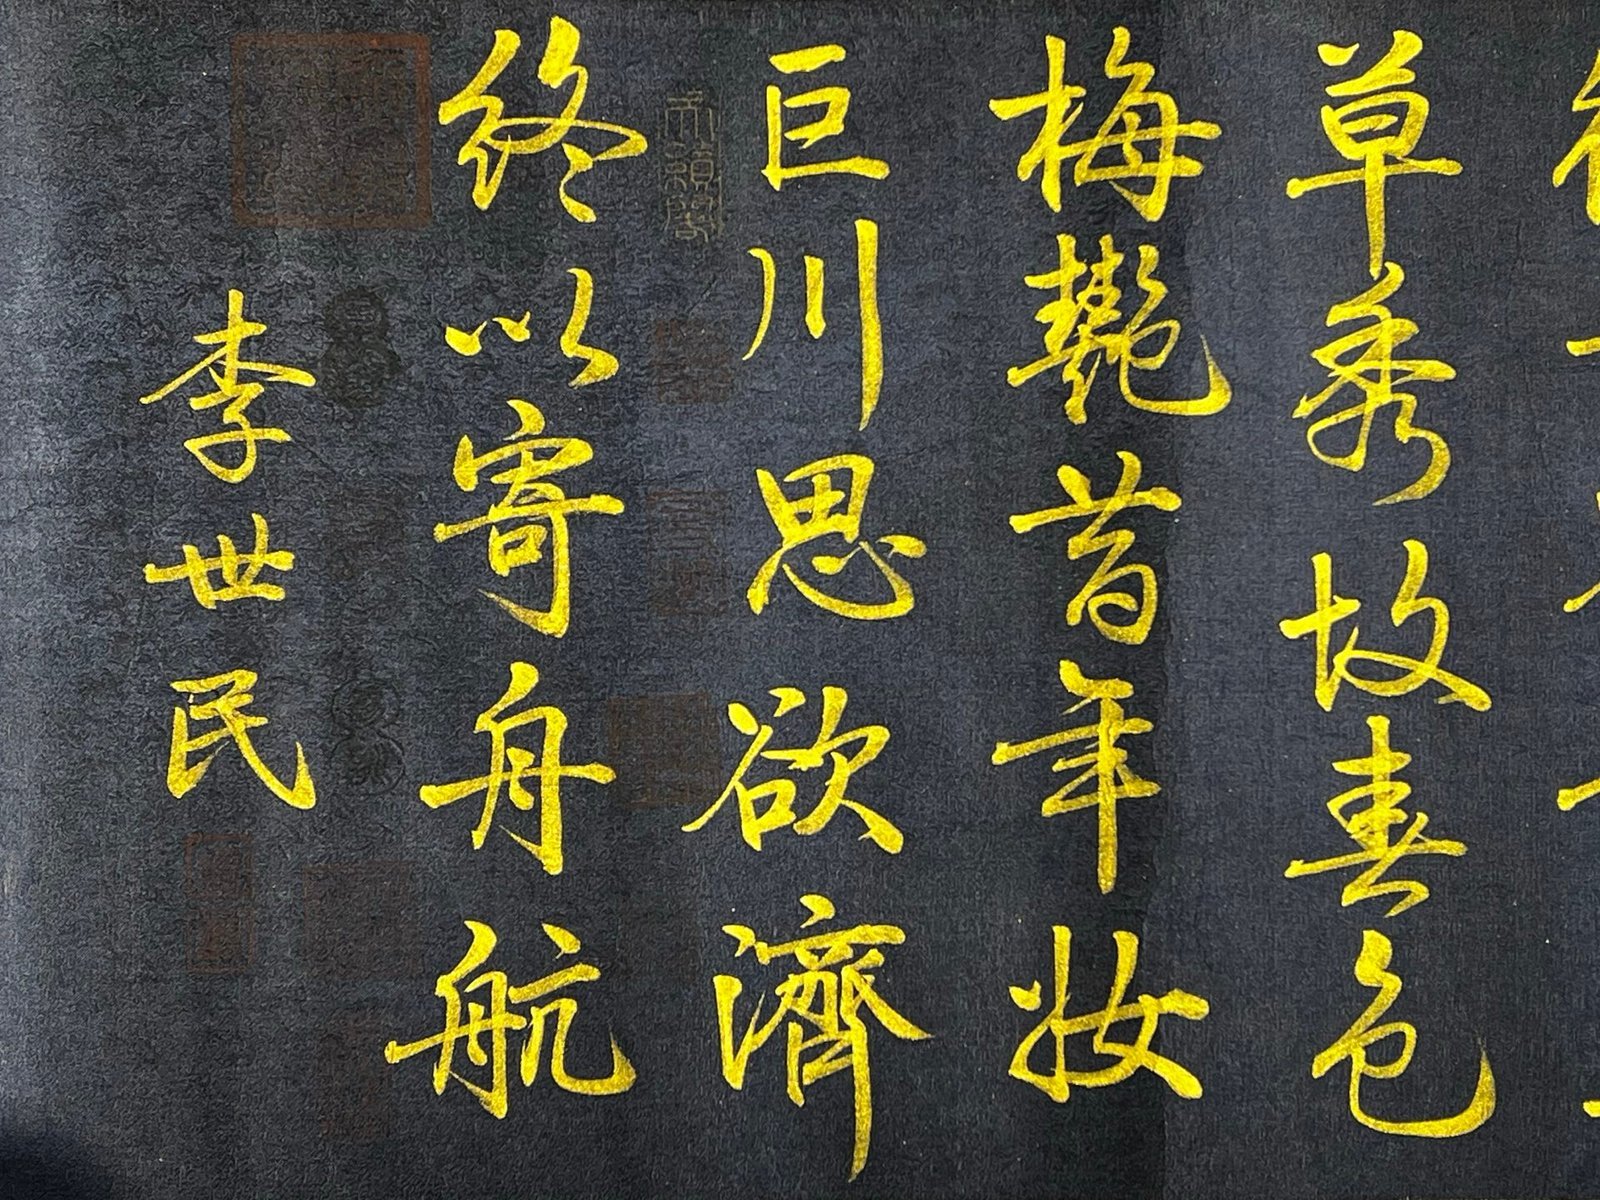 草秀故春色
梅艷昔年妝
巨川思欲濟
終以寄舟航
李世民